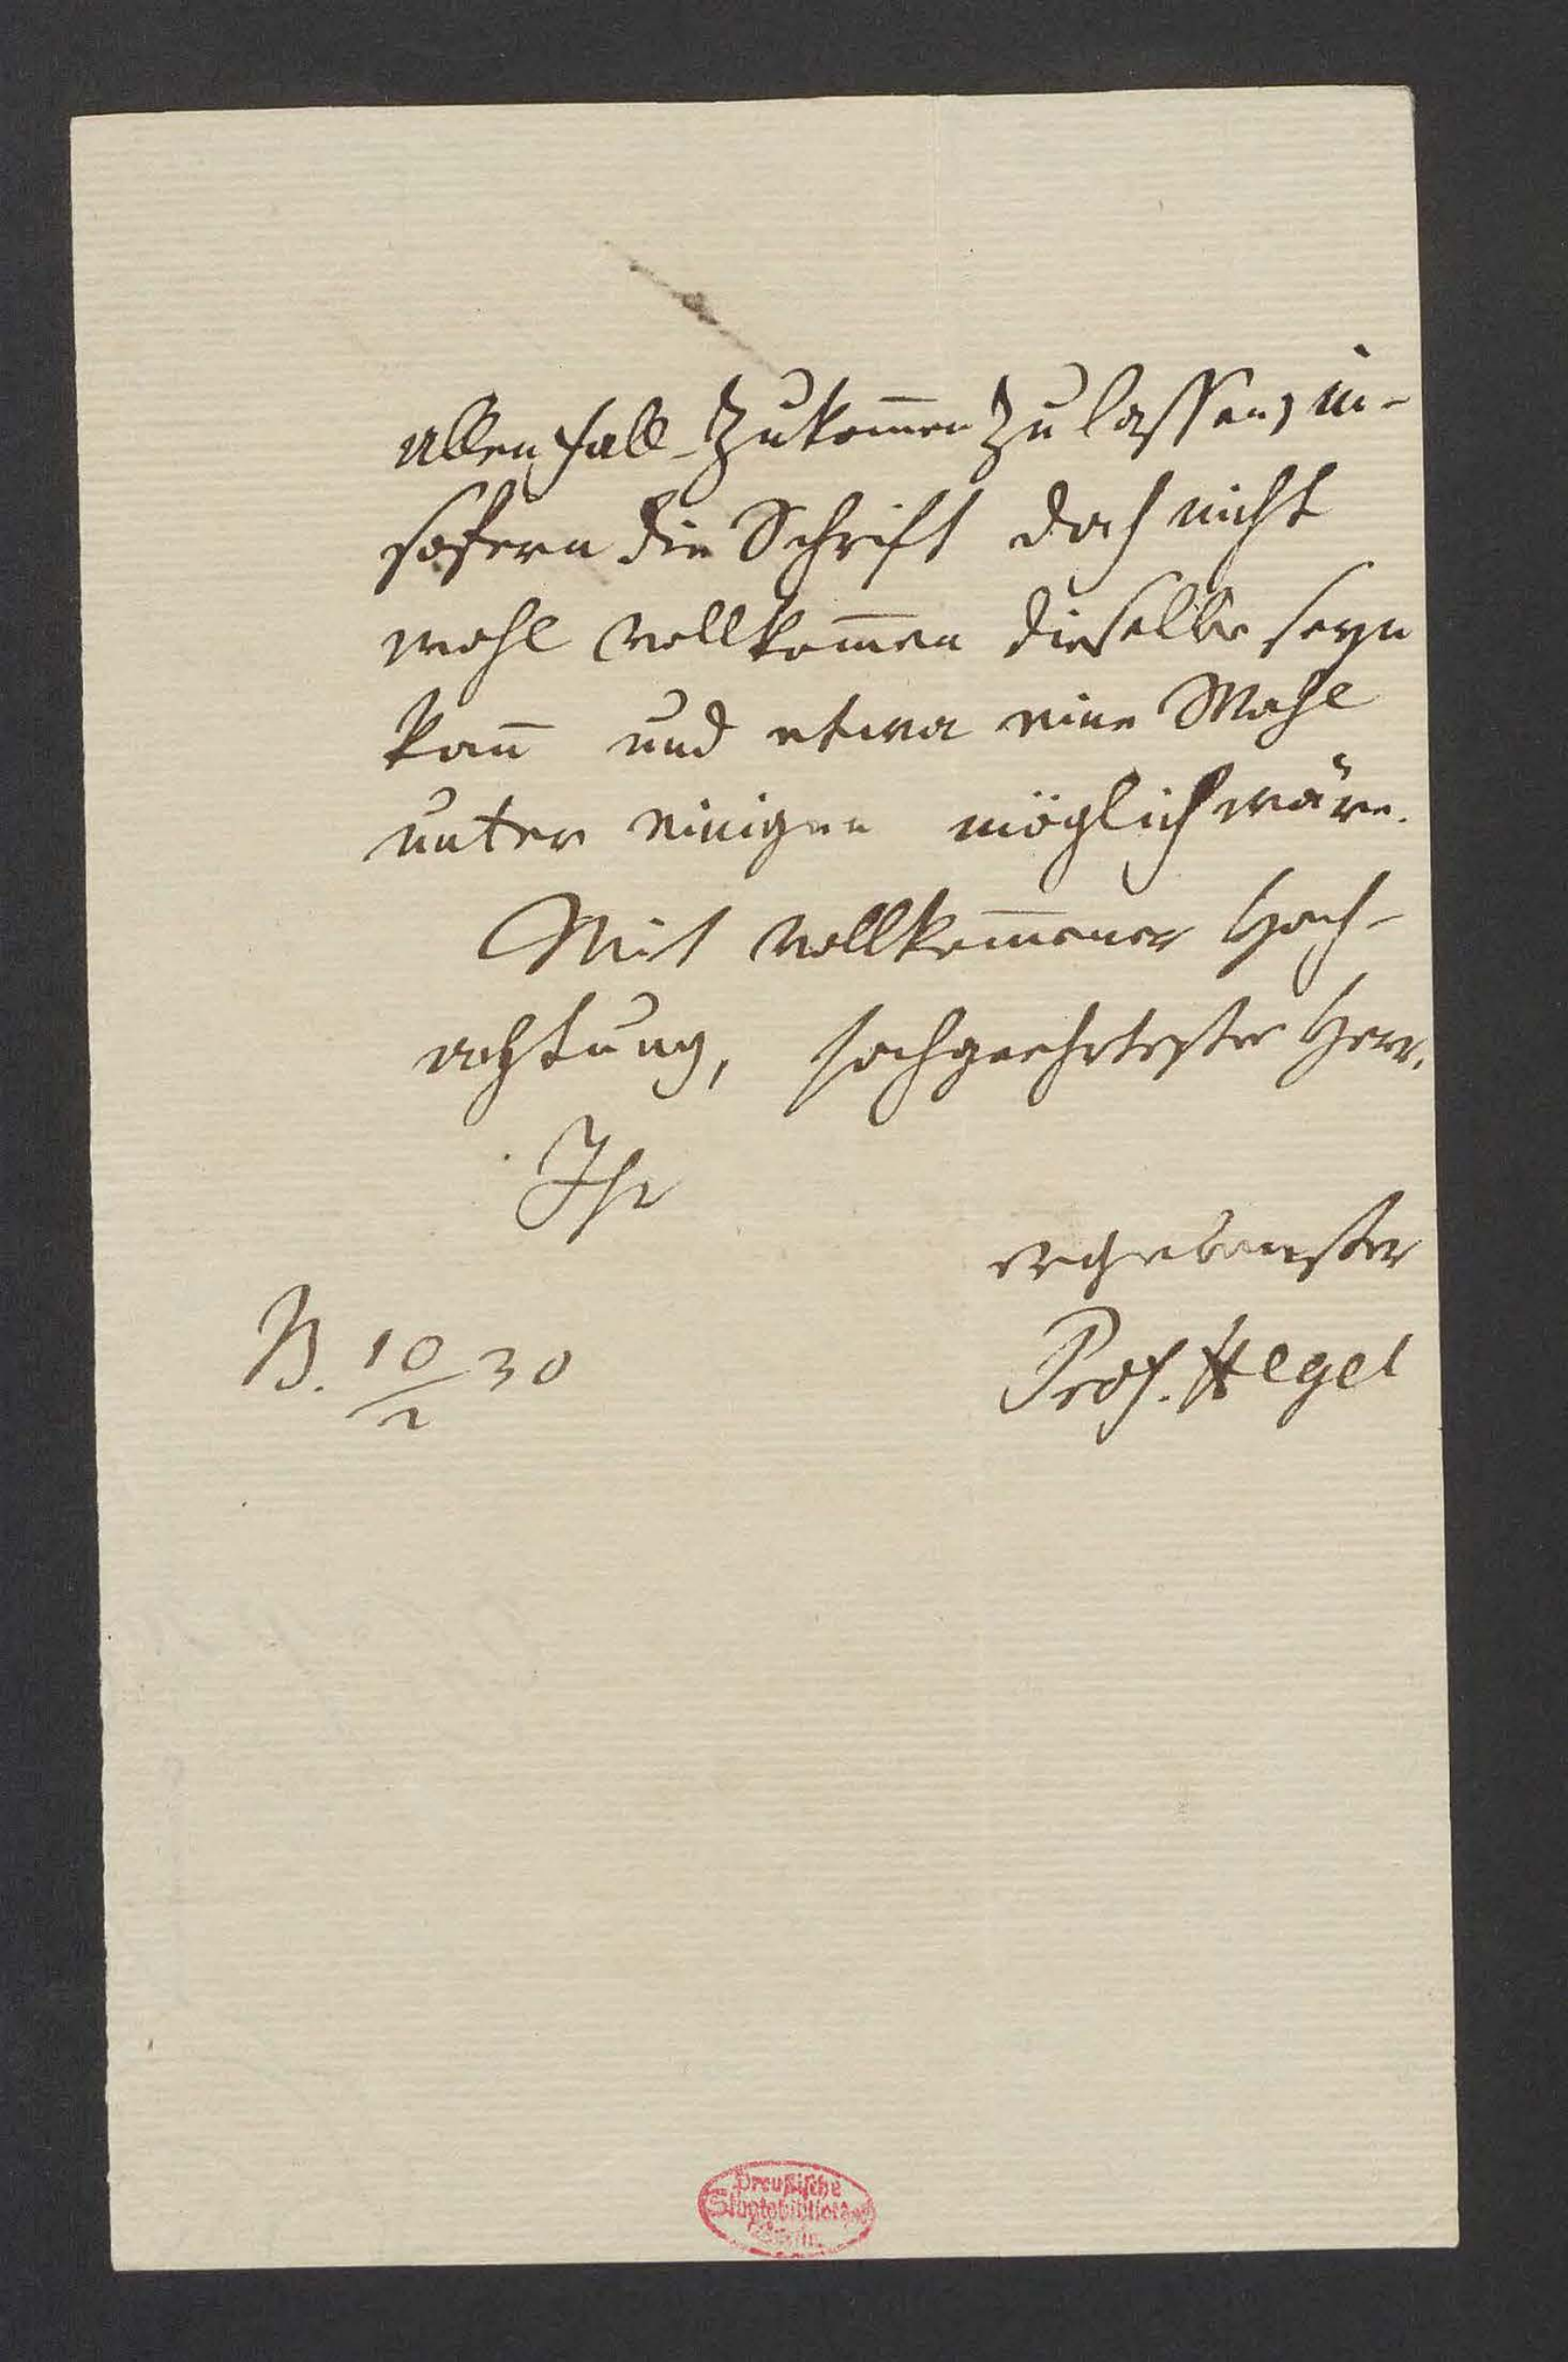 allen fall zukom̅en zu lassen, in-
sofern die Schrift doch nicht
wohl vollkom̅en dieselbe seyn
kan̅ und etwa eine Wahl
unter einigen möglich wäre.
Mit vollkom̅ener Hoch-
achtung, hochgeehrtester Herr,
Ihr
ergebenster
B. 10/2 30
Prof. Hegel
Preußische
Staatsbibliothek
Berlin